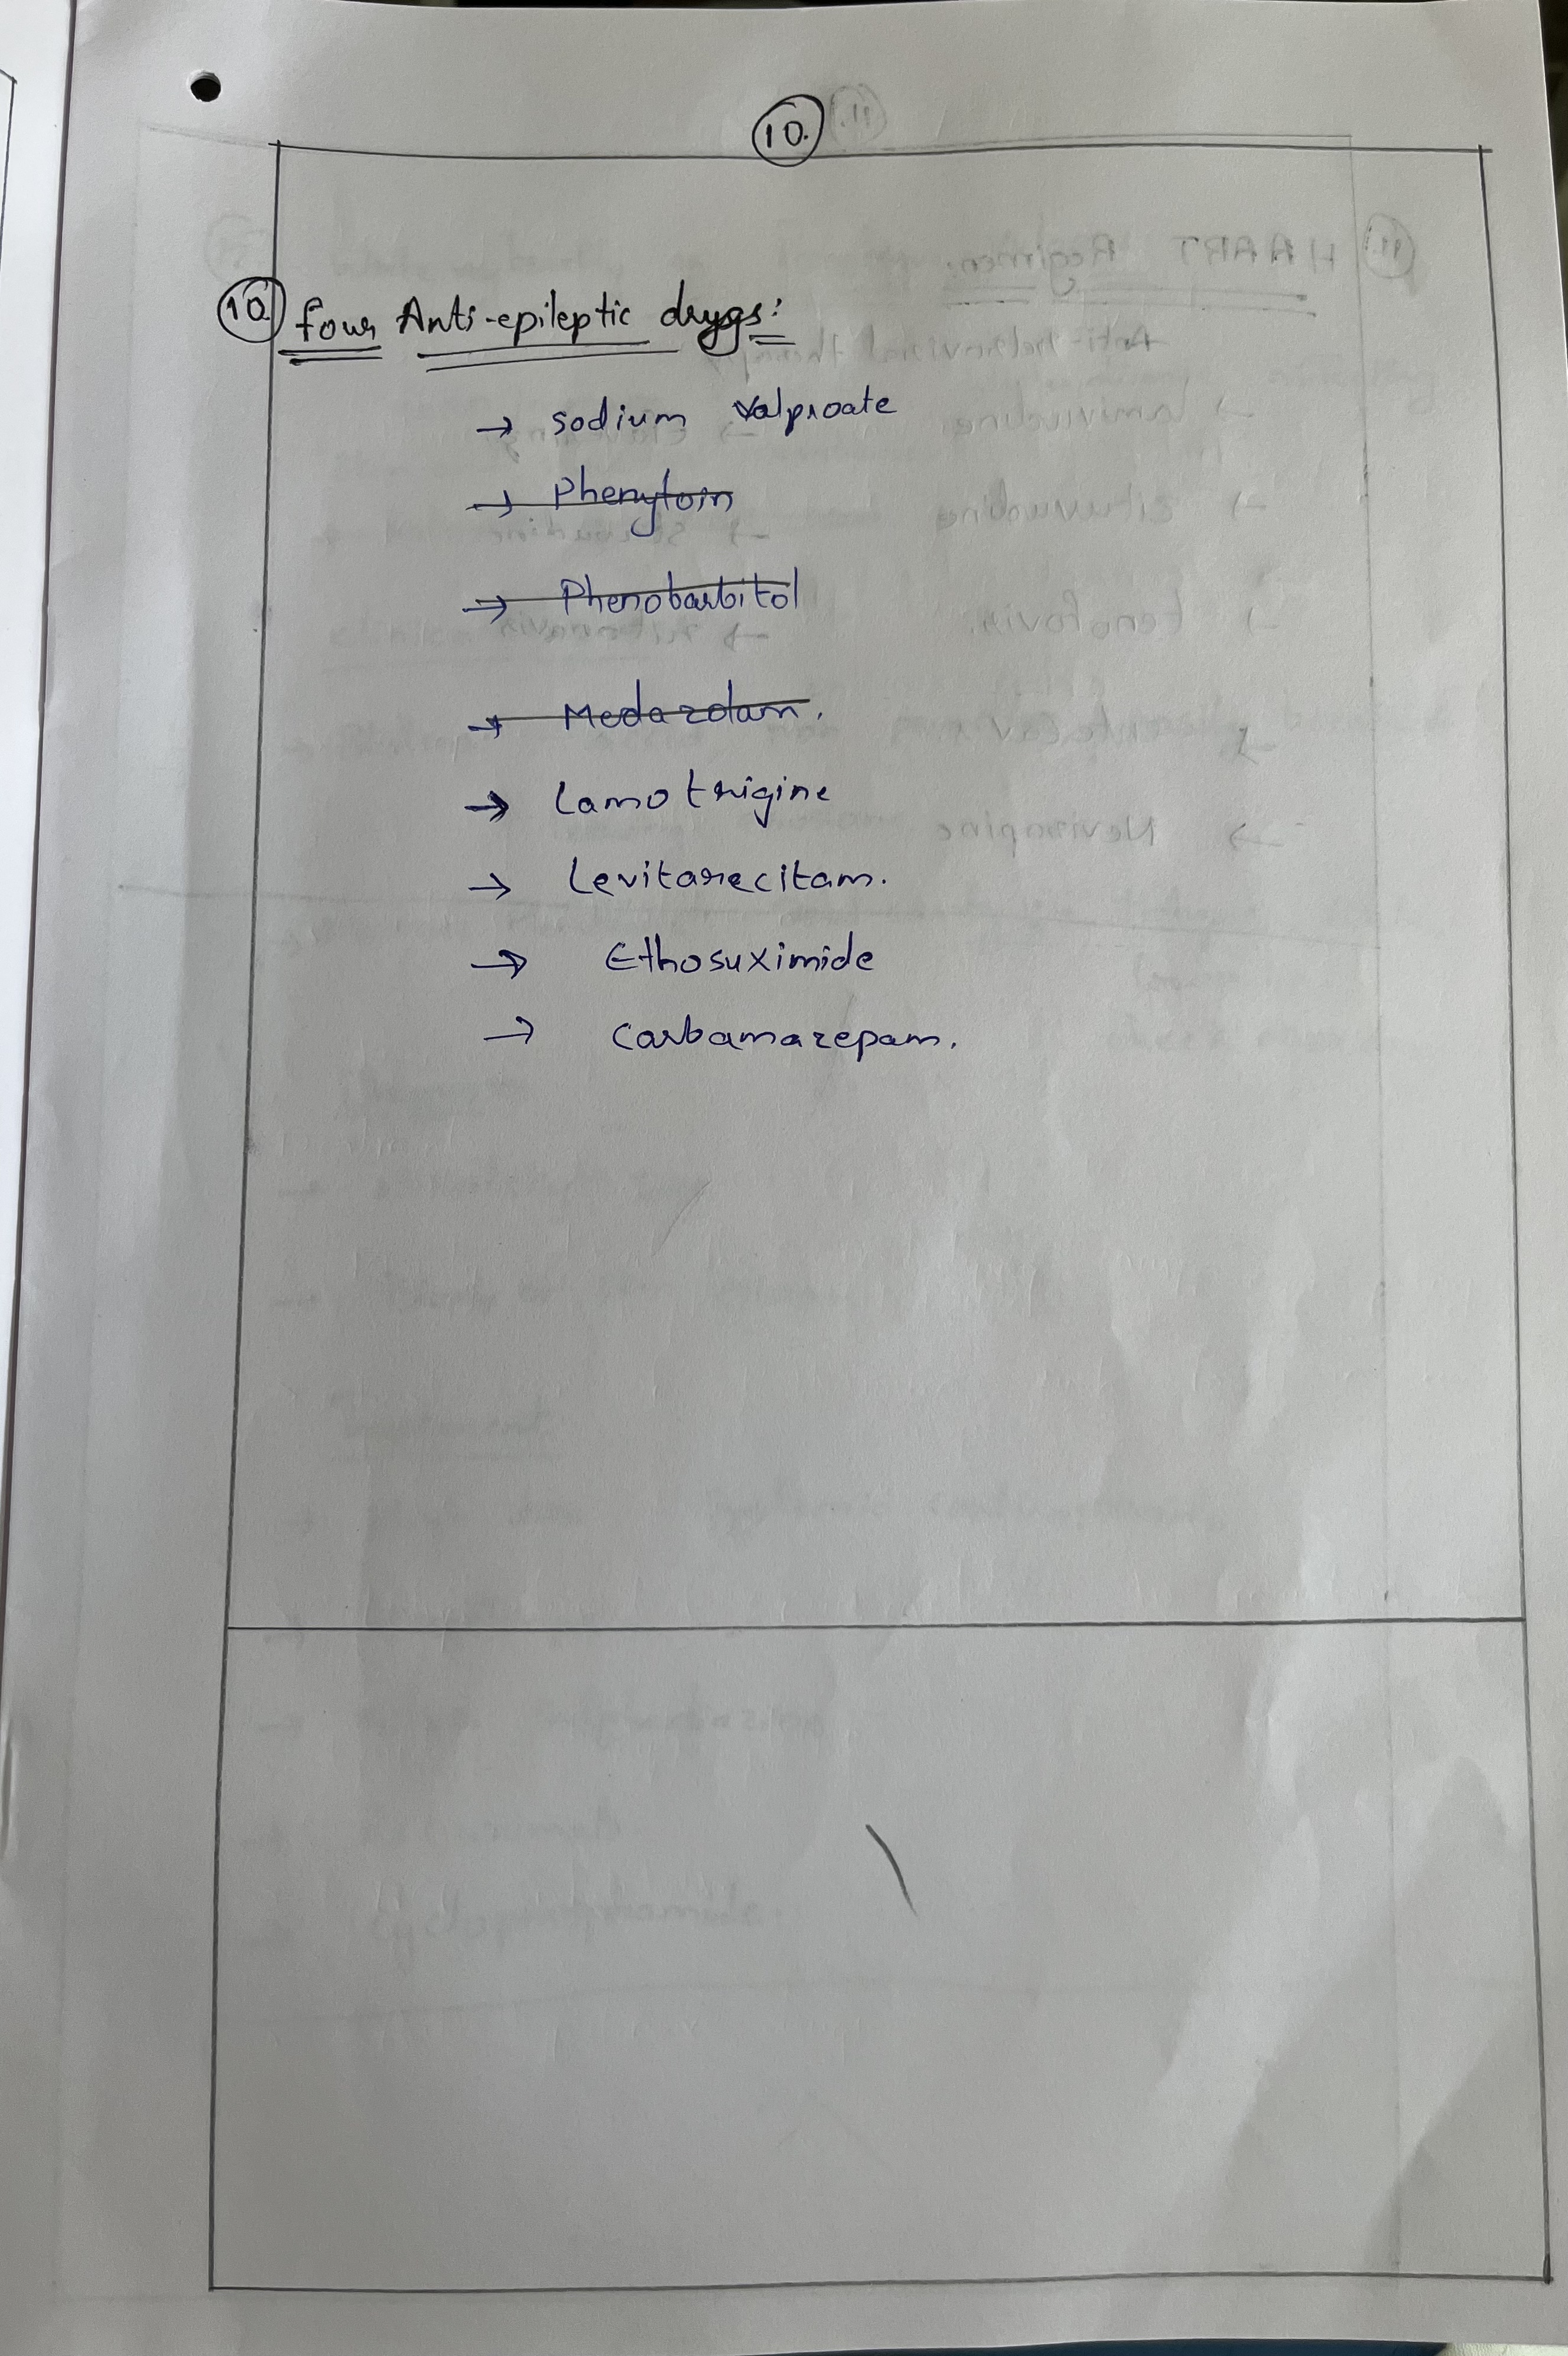 10.
10 four Anti-epileptic drugs:
→ sodium valproate
→ Phenytoin
→ Phenobarbitol
→ Medazolam.
→ Lamotrigine
→ Levitarecitam.
→ Ethosuximide
→ Carbamazepam.